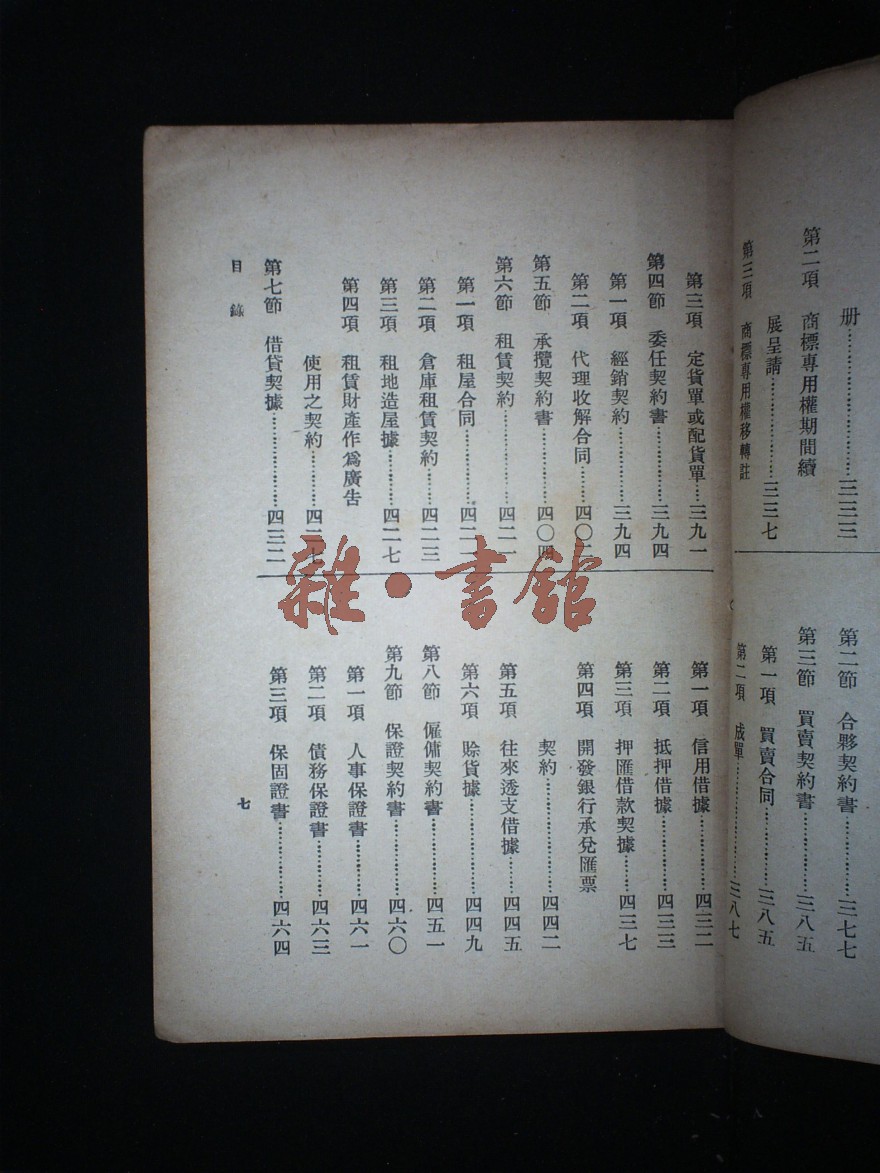 册……………三三三
第二項 商標專用權期間續
展呈請……………三三七
第三項 商標專用權移轉註
第二節 合夥契約書……三七七
第三節 買賣契約書……三八五
第一項 買賣合同……三八五
第二項 成單……………三八七
第三項 定貨單或配貨單…三九一
第四節 委任契約書………三九四
第一項 經銷契約………三九四
第二項 代理收解合同……四〇二
第五節 承攬契約書………四〇四
第六節 租賃契約…………四二一
第一項 租屋合同………四二一
第二項 倉庫租賃契約……四二三
第三項 租地造屋據………四二七
第四項 租賃財產作爲廣告
使用之契約………四二七
第七節 借貸契據…………四三二
第一項 信用借據………四三二
第二項 抵押借據………四三三
第三項 押匯借款契據……四三七
第四項 開發銀行承兌匯票
契約……………四四二
第五項 往來透支借據……四四五
第六項 賒貨據…………四四九
第八節 僱傭契約書………四五一
第九節 保證契約書………四六〇
第一項 人事保證書………四六一
第二項 債務保證書………四六三
第三項 保固證書…………四六四
目錄
七
雜·書館